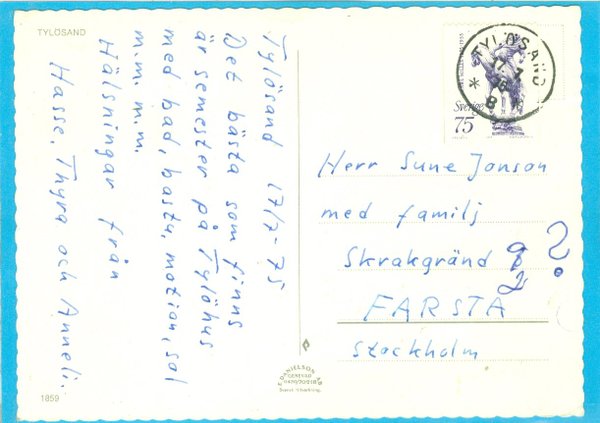 TYLÖSAND
Tylösand 17/7-75
Det bästa som finns
är semester på Tylöhus
med bad, bastu, motion, sol
m.m. m.m.
Hälsningar från
Hasse, Thyra och Anneli.
1859
TYLÖSAND
17.7
Sverige
75
Herr Sune Jonson
med familj
Skrakgränd 9 ?
2
FARSTA
Stockholm